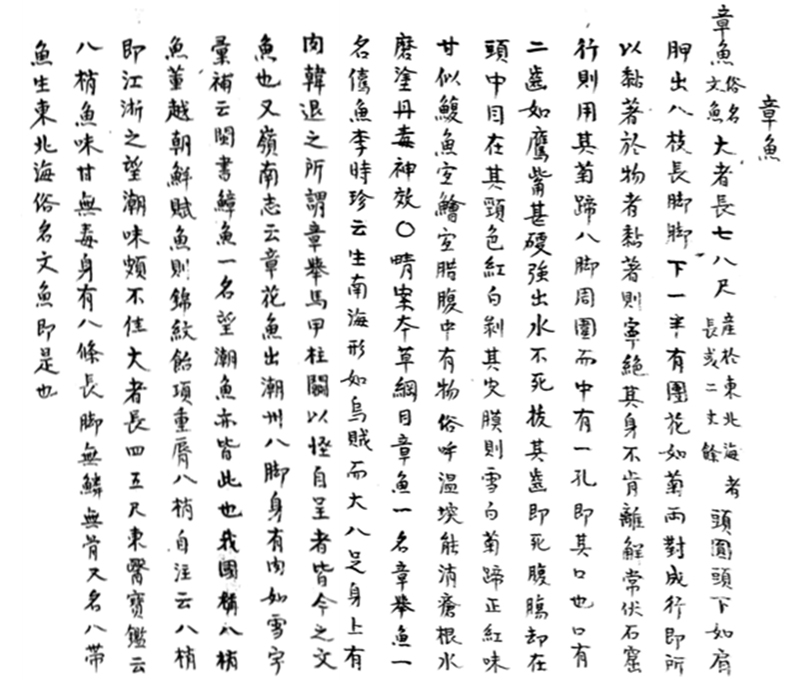 章魚
章魚 俗名文魚 大者長七八尺 產於東北海者長或二丈餘 頭圓頭下如肩
胛出八枝長脚脚下一半有團花如菊両對成行即所
以黏著於物者黏著則寧絶其身不肯離解常伏石窟
行則用其菊蹄八脚周圍而中有一孔即其口也口有
二齒如鷹觜甚硬強出水不死拔其齒即死腹膓却在
頭中目在其頸色紅白剥其皮膜則雪白菊蹄正紅味
甘似鰒魚宜鱠宜腊腹中有物俗呼温堗能消瘡根水
磨塗丹毒神效〇晴案夲草綱目章魚一名章舉魚一
名㑶魚李時珍云生南海形如烏賊而大八足身上有
肉韓退之所謂章舉馬甲柱闘以怪自呈者皆今之文
魚也又嶺南志云章花魚出潮州八脚身有肉如雪字
彙補云閩書鱆魚一名望潮魚亦皆此也我國稱八梢
魚董越朝鮮賦魚則錦紋飴項重脣八梢自注云八梢
即江浙之望潮味頗不佳大者長四五尺東醫寶鑑云
八梢魚味甘無毒身有八條長脚無鱗無骨又名八帶
魚生東北海俗名文魚即是也